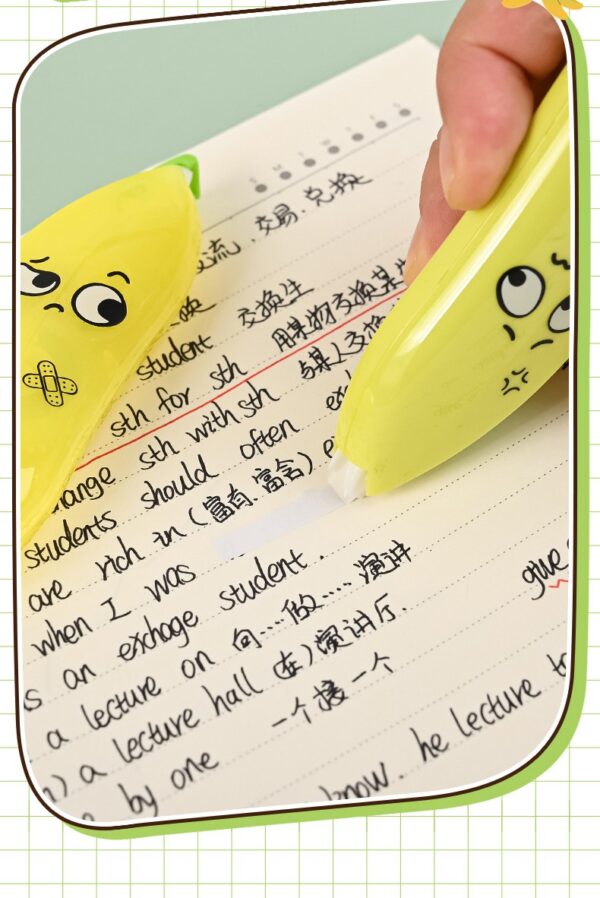 S M T W T F S
交流.交易.兑换
换 交换生
student 用某物交换某
sth for sth 与某人交换
change sth with sth
students should often ex
are rich in (富有.富含) e
when I was
s an exchage student.
a lecture on 句....做.....演讲
) a lecture hall (在)演讲厅.
by one 一个接一个
know. he lecture to
give